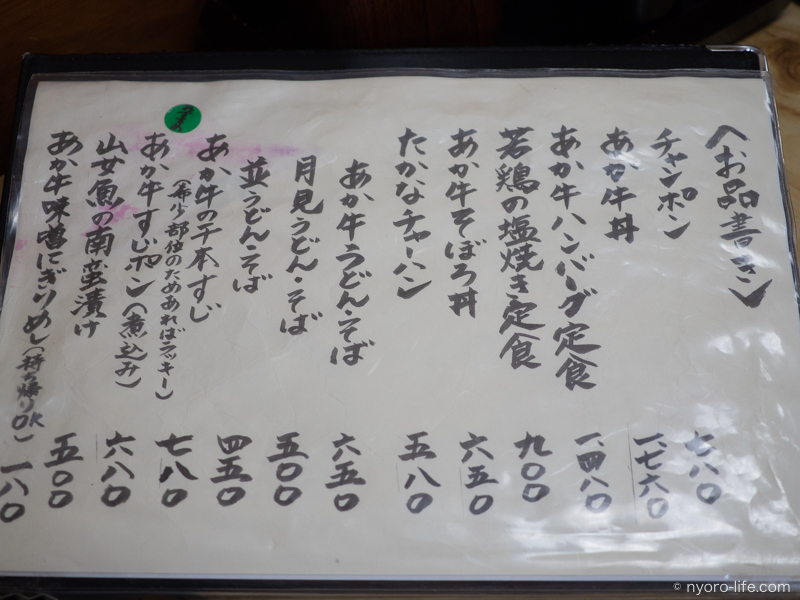 〈お品書き〉
チャンポン 七八〇
あか牛丼 一、七六〇
あか牛ハンバーグ定食 一、四八〇
若鶏の塩焼き定食 九〇〇
あか牛そぼろ丼 六五〇
たかなチャーハン 五八〇
あか牛うどん・そば 六五〇
月見うどん・そば 五〇〇
並うどん・そば 四五〇
あか牛の千本すじ 七八〇
(希少部位のためあればラッキー)
おすすめ
あか牛すじポン(煮込み) 六八〇
山女魚の南蛮漬け 五〇〇
あか牛味噌にぎりめし(持ち帰りOK) 一八〇
© nyoro-life.com